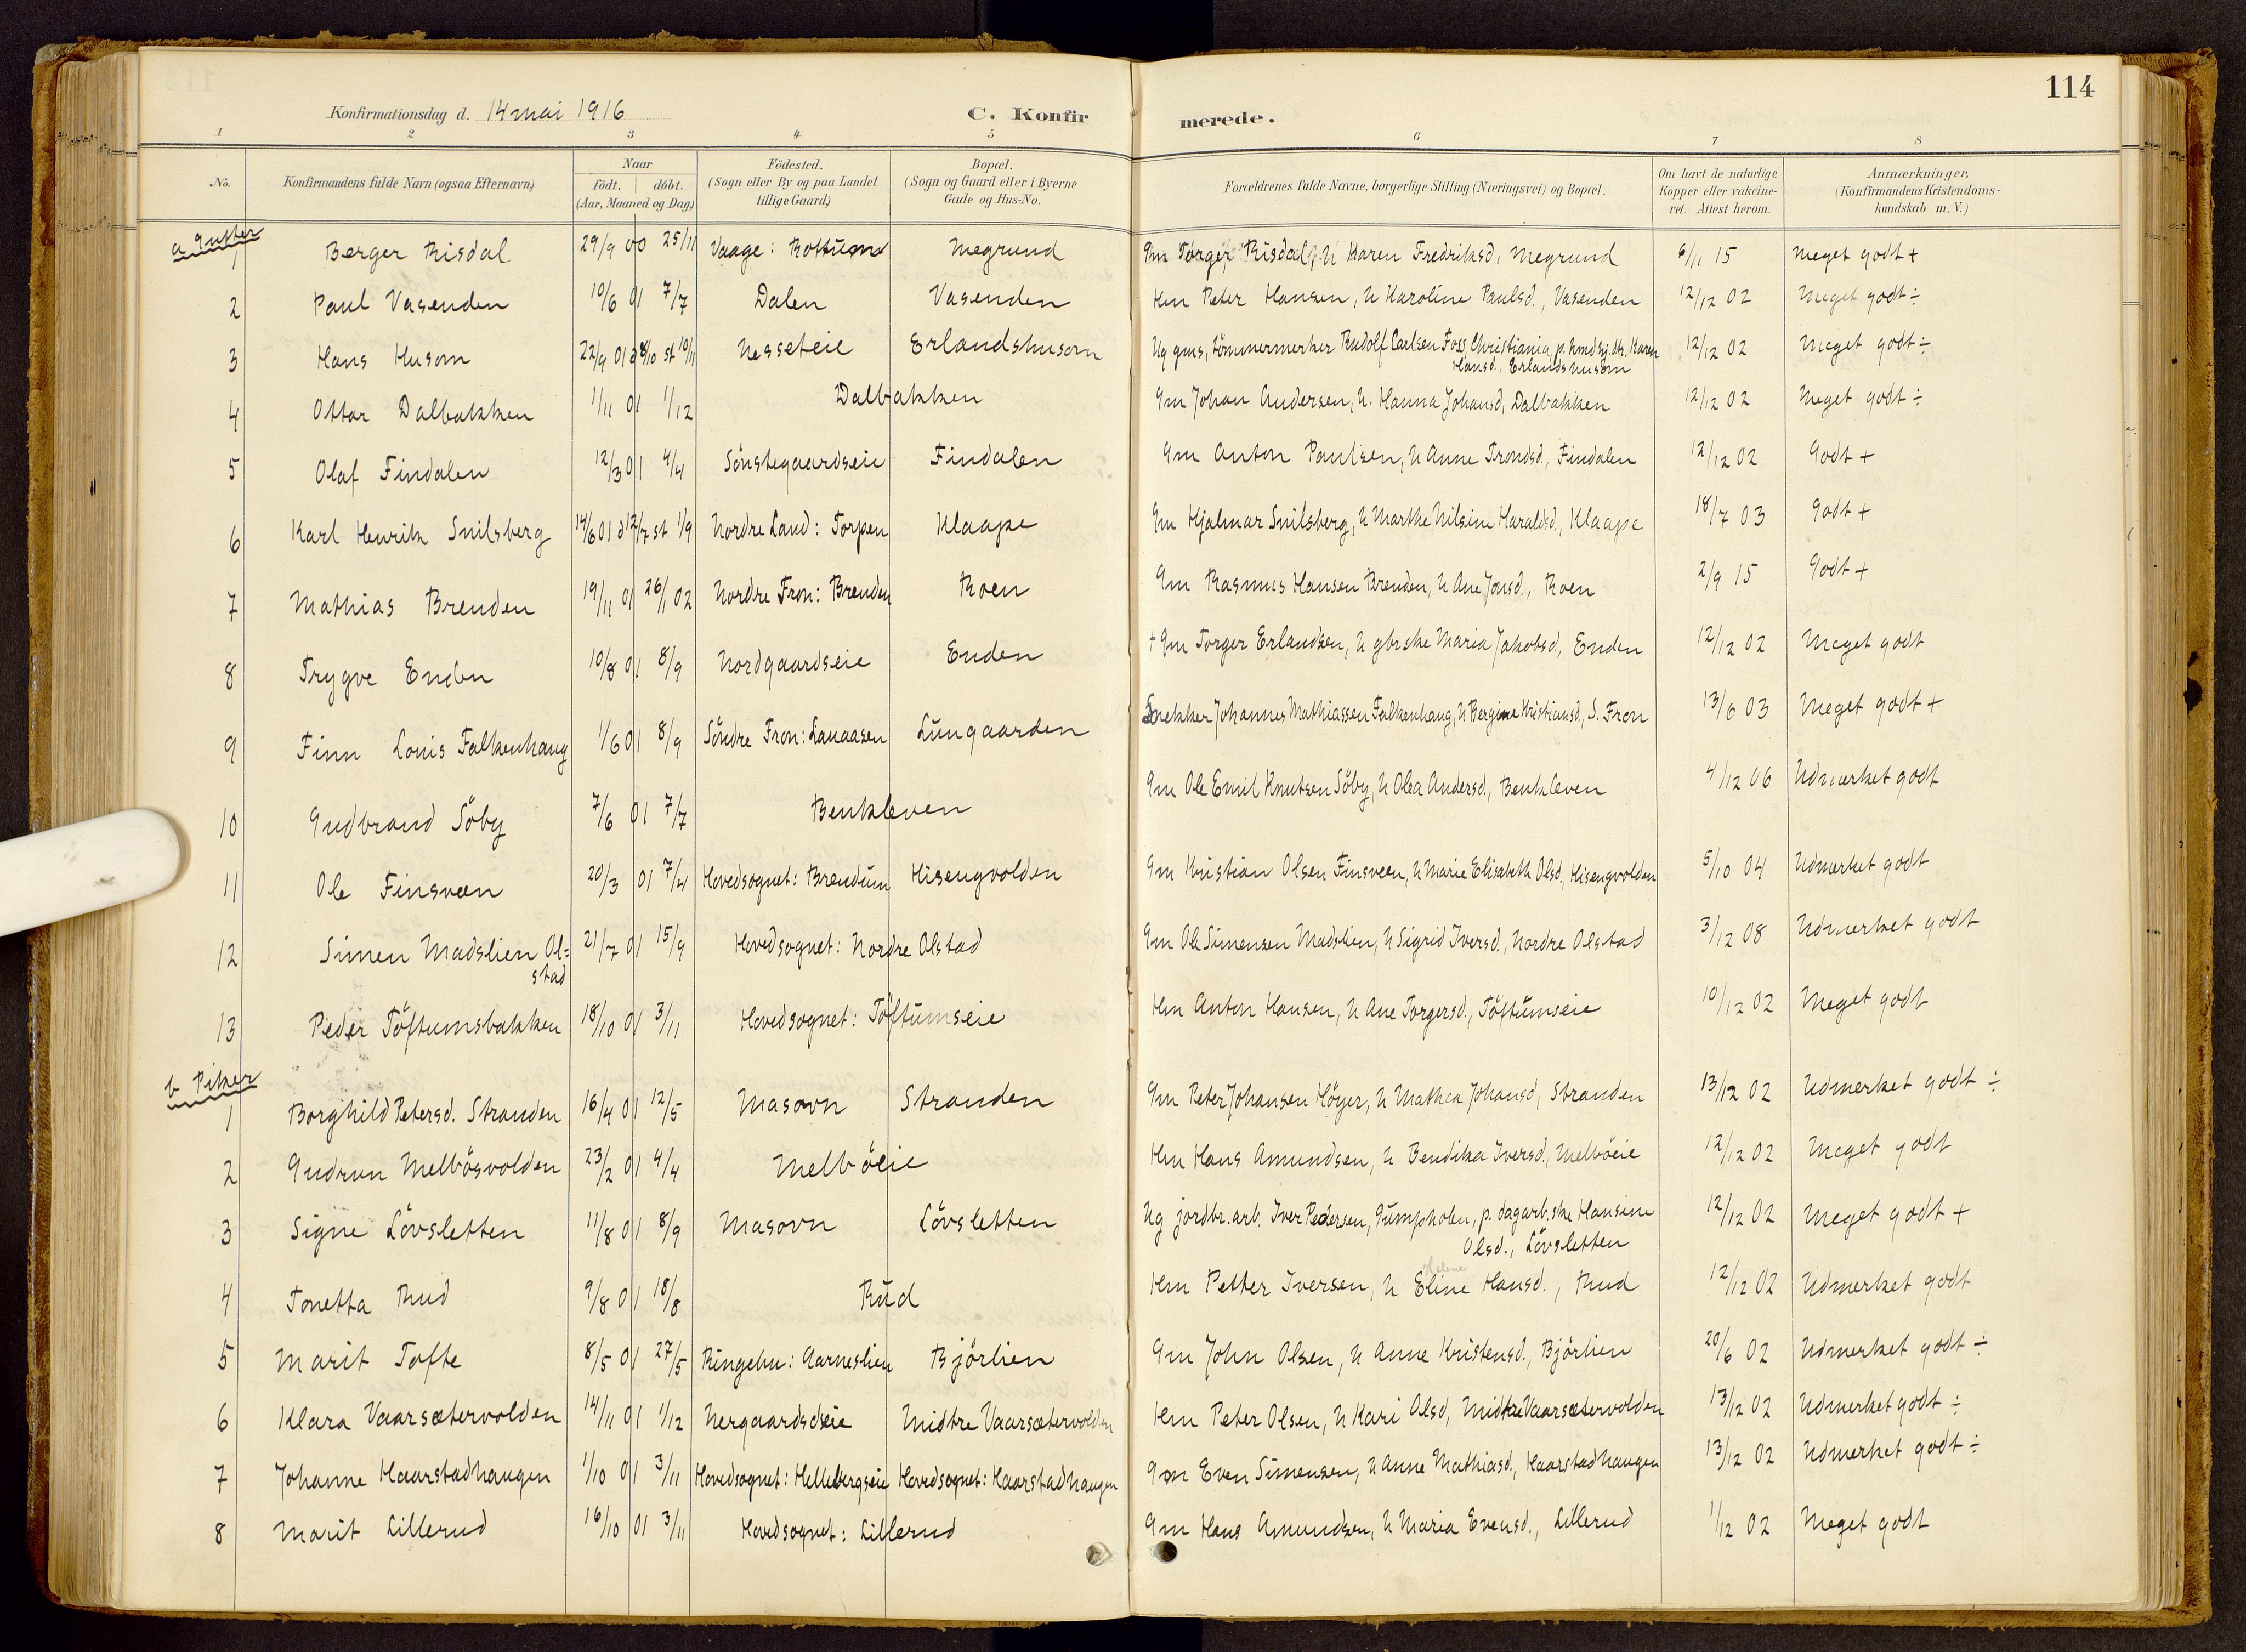 114
Konfirmationsdag d. 14 mai 1916
C. Konfirmerede.
1 2 3 4 5 6 7 8
No.
Konfirmandens fulde Navn (ogsaa Efternavn)
Naar
födt. döbt.
(Aar, Maaned og Dag)
Födested.
(Sogn eller By og paa Landet
tillige Gaard)
Bopæl.
(Sogn og Gaard eller i Byerne
Gade og Hus-No.
Forældrenes fulde Navne, borgerlige Stilling (Næringsvei) og Bopæl.
Om havt de naturlige
Kopper eller vakcine-
ret. Attest herom.
Anmærkninger.
(Konfirmandens Kristendoms-
kundskab m. V.)
a Gutter
1 Berger Risdal 29/9 00 25/11 Vaage: Bottum Megrund Gm Torger Risdal, H Karen Fredriksd, Megrund 6/11 15 Meget godt +
2 Paul Vasenden 10/6 01 7/7 Dalen Vasenden Hm Peter Hansen, H Karoline Paulsd., Vasenden 12/12 02 Meget godt ÷
3 Hans Husom 22/9 01 d 8/10 st 10/11 Nesseteie Erlandshusom Ug gms, tömmermerker Rudolf Carlsen Foss, Christiania, p. hmd hj. dtr. Karen
Hansd., Erlandshusom 12/12 02 Meget godt ÷
4 Ottar Dalbakken 1/11 01 1/12 Dalbakken Gm Johan Andersen, H. Hanna Johansd, Dalbakken 12/12 02 Meget godt ÷
5 Olaf Findalen 12/3 01 4/4 Sönstegaardseie Findalen Gm Anton Paulsen, H Anne Trondsd., Findalen 12/12 02 Godt +
6 Karl Henrik Snilsberg 14/6 01 d 12/7 st 1/9 Nordre Land: Torpen Klaape Gm Hjalmar Snilsberg, H Marthe Nilsine Haraldsd., Klaape 18/7 03 Godt +
7 Mathias Brenden 19/11 01 26/1 02 Nordre Fron: Brenden Roen Gm Rasmus Hansen Brenden, H Ane Jonsd., Roen 2/9 15 Godt +
8 Trygve Enden 10/8 01 8/9 Nordgaardseie Enden + Gm Torger Erlandsen, H gbrske Maria Jakobsd, Enden 12/12 02 Meget godt
9 Finn Louis Falkenhaug 1/6 01 8/9 Söndre Fron: Lauaasen Lüngaarden Snekker Johannes Mathiassen Falkenhaug, H Bergine Kristiansd, S. Fron 13/6 03 Meget godt +
10 Gudbrand Söby 7/6 01 7/7 Benkleven Gm Ole Emil Knutsen Söby, H Olea Andersd., Benkleven 4/12 06 Udmerket godt
11 Ole Finsveen 20/3 01 7/4 Hovedsognet: Brendum Hisengvolden Gm Kristian Olsen Finsveen, H Marie Elisabeth Olsd., Hisengvolden 5/10 04 Udmerket godt
12 Simen Madslien Ol=
stad 21/7 01 15/9 Hovedsognet: Nordre Olstad Gm Ole Simensen Madslien, H Sigrid Iversd., Nordre Olstad 3/12 08 Udmerket godt
13 Peder Töftumsbakken 18/10 01 3/11 Hovedsognet: Töftumseie Hm Anton Hansen, H Ane Torgersd., Töftumseie 10/12 02 Meget godt
b Piker
1 Borghild Petersd. Stranden 16/4 01 12/5 Masovn Stranden Gm Peter Johansen Höyer, H Mathea Johansd, Stranden 13/12 02 Udmerket godt ÷
2 Gudrun Melbösvolden 23/2 01 4/4 Melböeie Hm Hans Amundsen, H Bendika Iversd., Melböeie 12/12 02 Meget godt
3 Signe Lövsletten 11/8 01 8/9 Masovn Lövsletten Ug jordbr.arb. Iver Pedersen, Gumpholen, p. dagarb.ske Hansine
Olsd., Lövsletten 12/12 02 Meget godt +
4 Tonetta Rud 9/8 01 18/8 Rud Hm Petter Iversen, H Eline Helene Hansd., Rud 12/12 02 Udmerket godt
5 Marit Tofte 8/5 01 27/5 Ringebu: Garneslien Bjørlien Gm John Olsen, H Anne Kristensd., Bjørlien 20/6 02 Udmerket godt ÷
6 Klara Vaarsætervolden 14/11 01 1/12 Nergaardseie Midtre Vaarsætervolden Hm Peter Olsen, H Kari Olsd, Midtre Vaarsætervolden 13/12 02 Udmerket godt ÷
7 Johanne Haarstadhaugen 1/10 01 3/11 Hovedsognet: Hellebergseie Hovedsognet: Haarstadhaugen Gm Even Simensen, H Anne Mathiasd., Haarstadhaugen 13/12 02 Udmerket godt ÷
8 Marit Lillerud 16/10 01 3/11 Hovedsognet: Lillerud Gm Hans Amundsen, H Maria Evensd., Lillerud 1/12 02 Meget godt